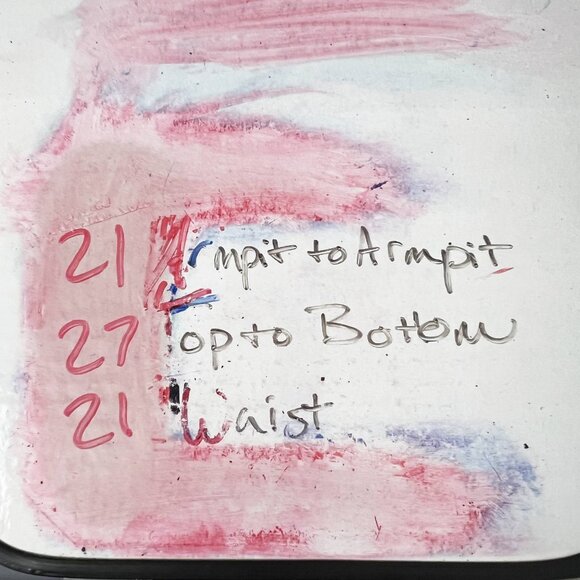 21 Armpit to Armpit
27 Top to Bottom
21 Waist